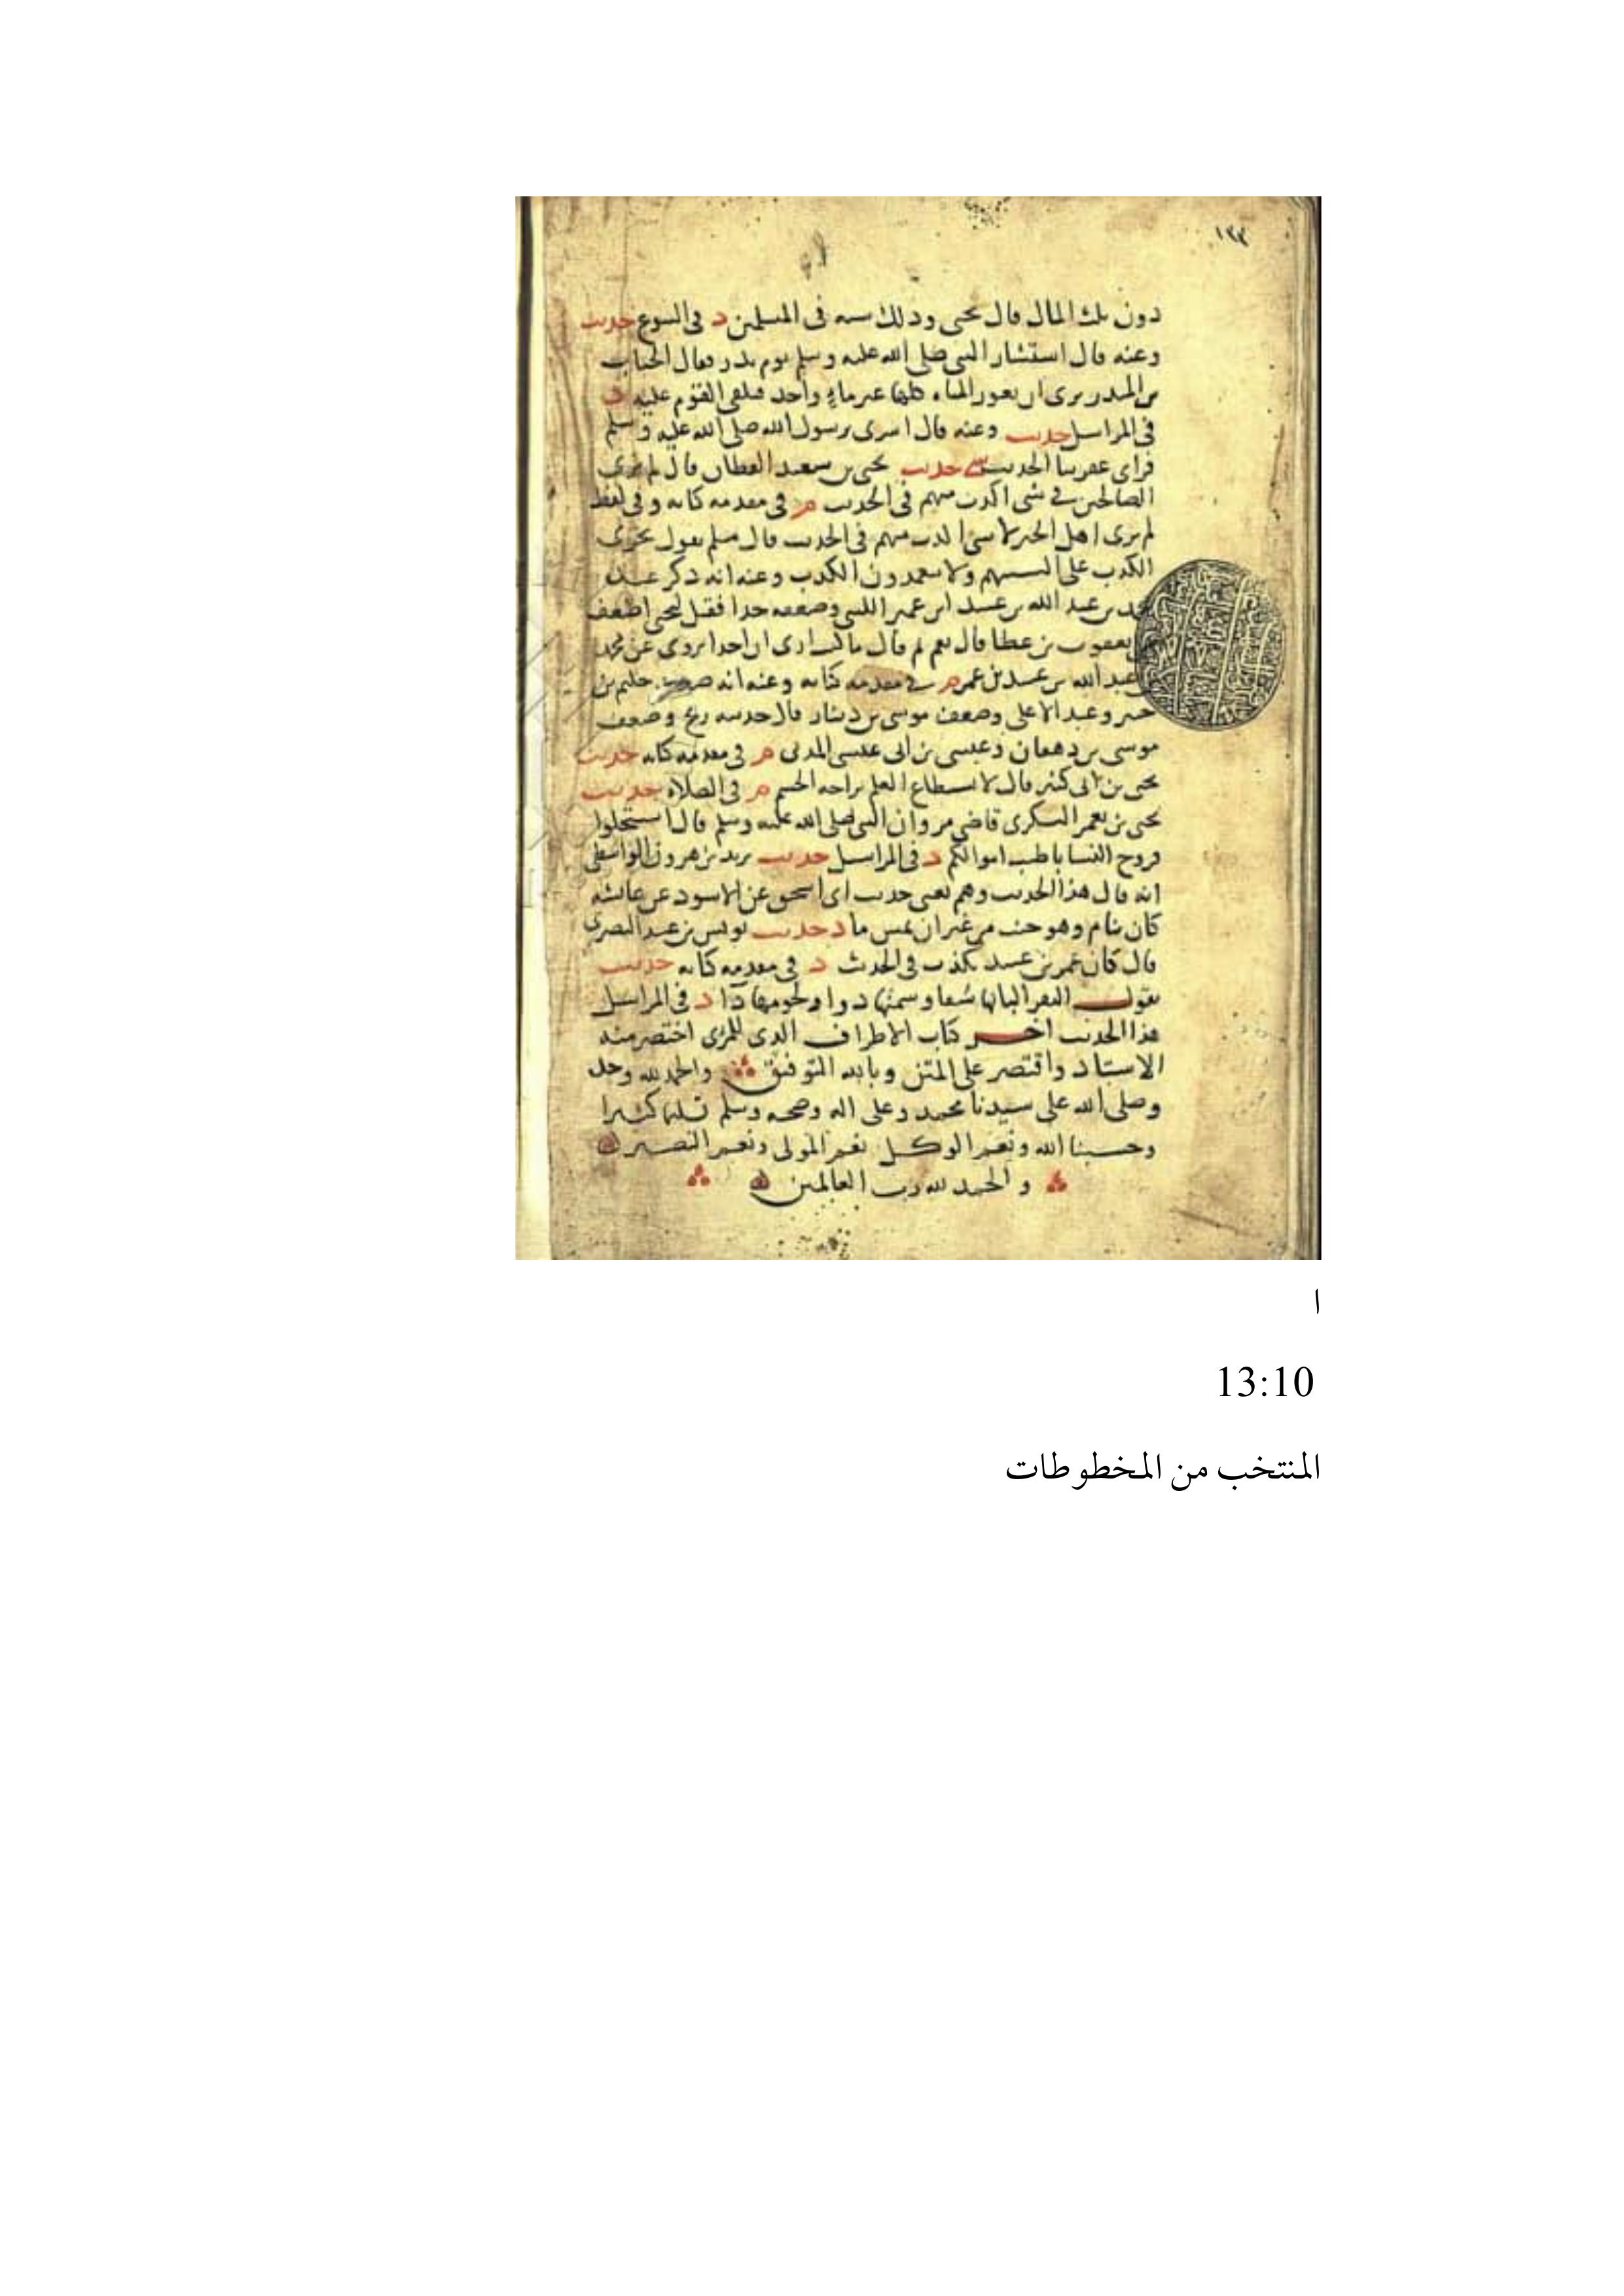 ١٢٢
دون ثلث المال قال يحيى وذلك سنة في المسلمين د في البيوع حديث
وعنه قال استشار النبي صلى الله عليه وسلم يوم بدر فقال الحباب
بن المنذر نرى ان نغور المياه كلها غير ماء واحد فنلقى القوم عليه د
في المراسيل حديث وعنه قال اسرى برسول الله صلى الله عليه وسلم
فراى عفريتا الحديث حديث يحيى بن سعيد القطان قال لم نرى
الصالحين في شى اكذب منهم في الحديث م في مقدمة كتابه وفي لفظ
لم نرى اهل الخير في شى اكذب منهم في الحديث قال مسلم يقول يجرى
الكذب على السنتهم ولا يتعمدون الكذب وعنه انه ذكر عنده
بن عبد الله بن عبيد ابن عمير الليثي وضعفه جدا فقيل ليحيى اضعف
يعقوب بن عطا قال نعم ثم قال ما كنت ارى ان احدا يروى عن محمد
عبد الله بن عبيد بن عمير م في مقدمة كتابه وعنه انه حكيم بن
جبير وعبد الاعلى وضعف موسى بن دينار قال حديثه ريح وضعف
موسى بن دهقان وعيسى بن ابى عيسى المدنى م في مقدمة كتابه حديث
يحيى بن ابى كثير قال لا يستطاع العلم براحة الجسم م في الصلاة حديث
يحيى بن يعمر قاضى مرو ان النبي صلى الله عليه وسلم قال استحلوا
فروج النسا باطيب اموالكم د في المراسيل حديث يزيد بن هرون الواسطى
انه قال هذا الحديث وهم يعنى حديث ابى اسحق عن الاسود عن عائشة
كان ينام وهو جنب من غير ان يمس ما د حديث يونس بن عبيد البصرى
قال كان عمرو بن عبيد يكذب في الحديث د في مقدمة كتابه حديث
البقر البانها شفا وسمنها دوا ولحومها دآا د في المراسيل
هذا الحديث اخر كتاب الاطراف الذى للمزى اختصر منه
الاسناد واقتصر على المتن وبالله التوفيق والحمد لله وحده
وصلى الله على سيدنا محمد وعلى اله وصحبه وسلم تسليما كثيرا
وحسبنا الله ونعم الوكيل نعم المولى ونعم النصير
والحمد لله رب العالمين
ا
13:10
المنتخب من المخطوطات